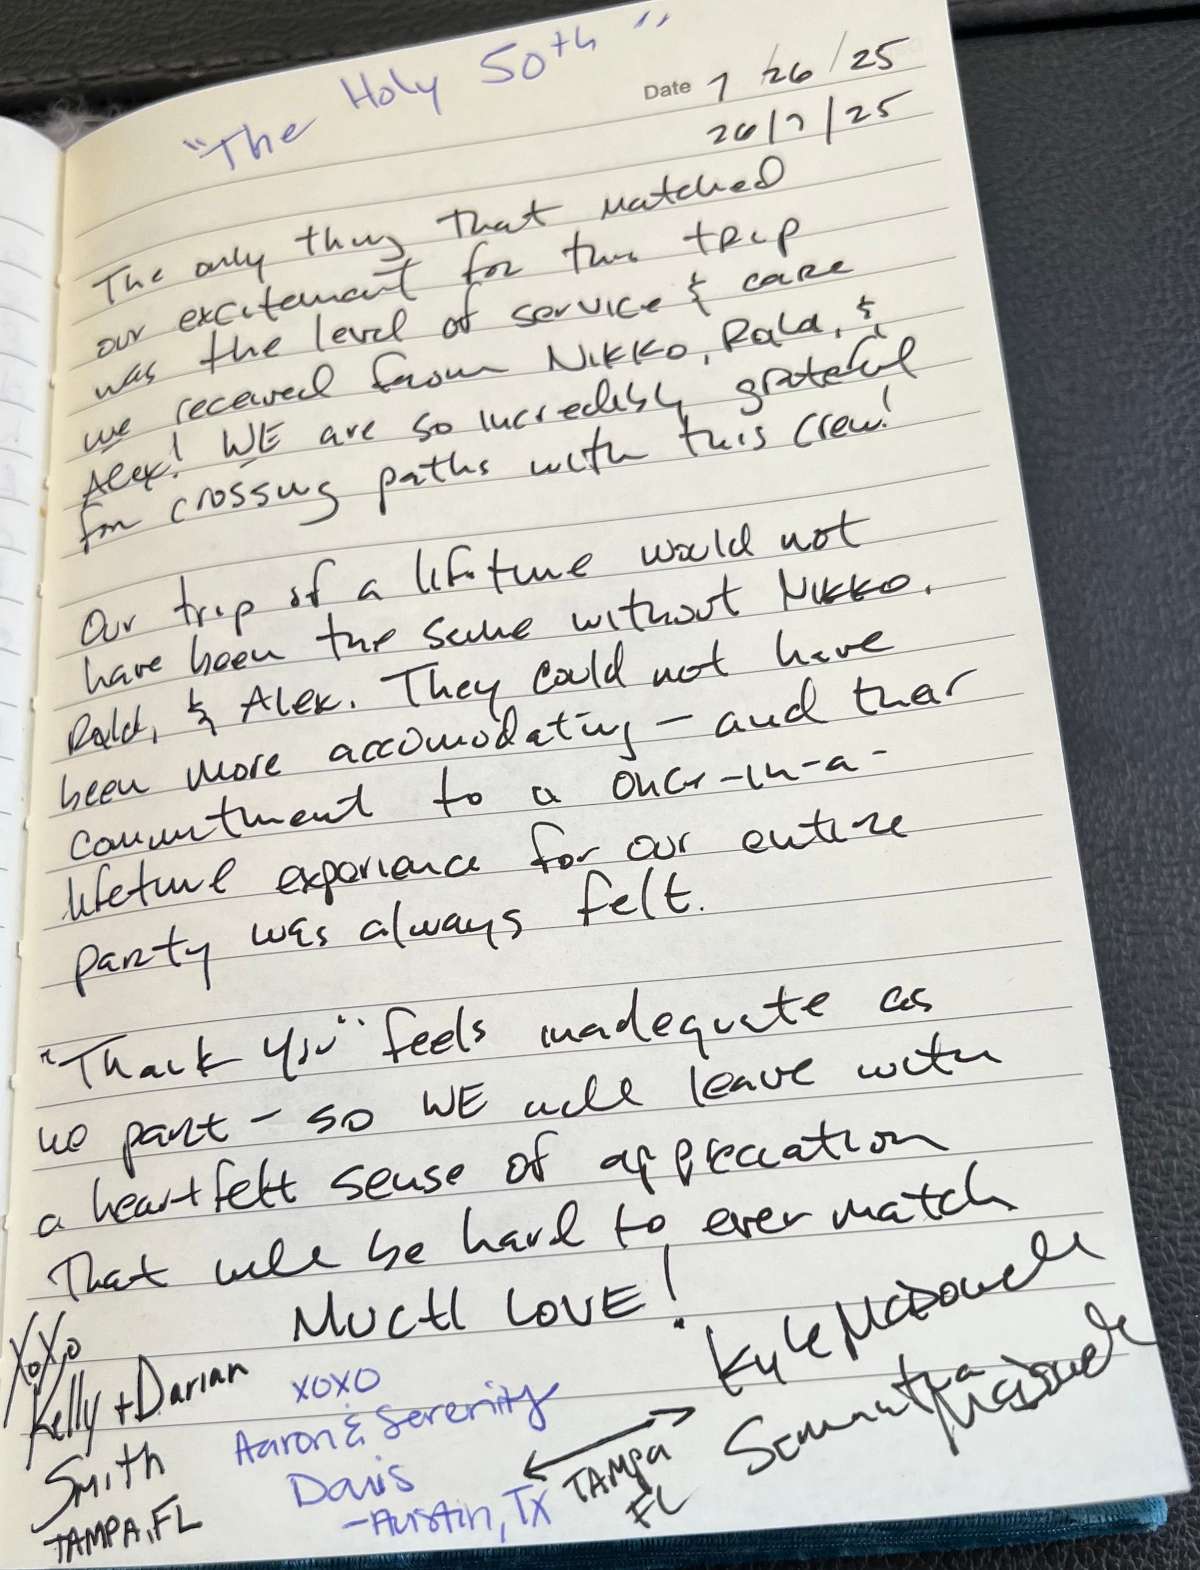 "The Holy 50th"
Date 7/26/25
26/7/25
The only thing that matched
our excitement for this trip
was the level of service & care
we received from Nikko, Rald, &
Alex! WE are so incredibly grateful
for crossing paths with this crew!
Our trip of a lifetime would not
have been the same without Nikko,
Rald, & Alex. They could not have
been more accomodating - and their
commitment to a once-in-a-
lifetime experience for our entire
party was always felt.
"Thank you" feels inadequate as
we part - so WE will leave with
a heartfelt sense of appreciation
that will be hard to ever match
MUCH LOVE!
XOXO
Kelly + Darian
Smith
TAMPA, FL
XOXO
Aaron & Serenity
Davis
- Austin, TX
TAMPA
FL
Kyle McDowell
Samantha McDowell